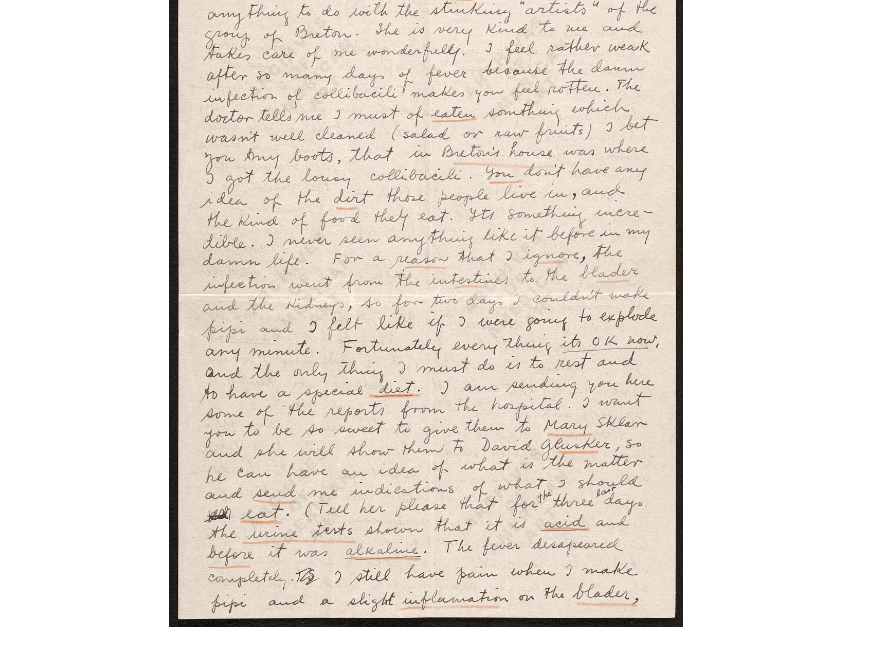 anything to do with the stinking "artists" of the
group of Breton. She is very kind to me and
takes care of me wonderfully. I feel rather weak
after so many days of fever because the damn
infection of collibacili makes you feel rotten. The
doctor tells me I must of eaten somthing which
wasn't well cleaned (salad or raw fruits) I bet
you my boots, that in Breton's house was where
I got the lousy collibacili. You don't have any
idea of the dirt those people live in, and
the kind of food they eat. Its something incre-
dible. I never seen anything like it before in my
damn life. For a reason that I ignore, the
infection went from the intestines to the blader
and the kidneys, so for two days I couldn't make
pipi and I felt like if I were going to explode
any minute. Fortunately everything its OK now,
and the only thing I must do is to rest and
to have a special diet. I am sending you here
some of the reports from the hospital. I want
you to be so sweet to give them to Mary Sklar
and she will show them to David Glusker, so
he can have an idea of what is the matter
and send me indications of what I should
eat. (Tell her please that for the three last days
the urine tests shown that it is acid and
before it was alkaline. The fever desapeared
completely. I still have pain when I make
pipi and a slight inflamation on the blader,